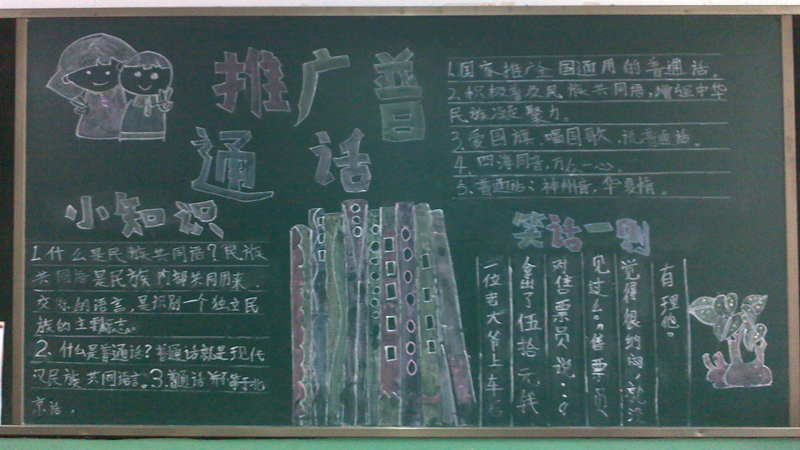 推广普
通话
小知识
1.什么是民族共同语?民族
共同语是民族内部共同用来
交际的语言,是识别一个独立民
族的主要标志。
2、什么是普通话?普通话就是现代
汉民族共同语言。3.普通话并不等于北
京话。
1.国家推广全国通用的普通话。
2.积极普及民族共同语,增强中华
民族凝聚力。
3.爱国旗、唱国歌、说普通话。
4.四海同音,万众一心。
5、普通话:神州音,华夏情。
笑话一则
一位老大爷上车后
拿出了伍拾元钱
对售票员说:“
见过么。”售票员
觉得很纳闷,就没
有理他。